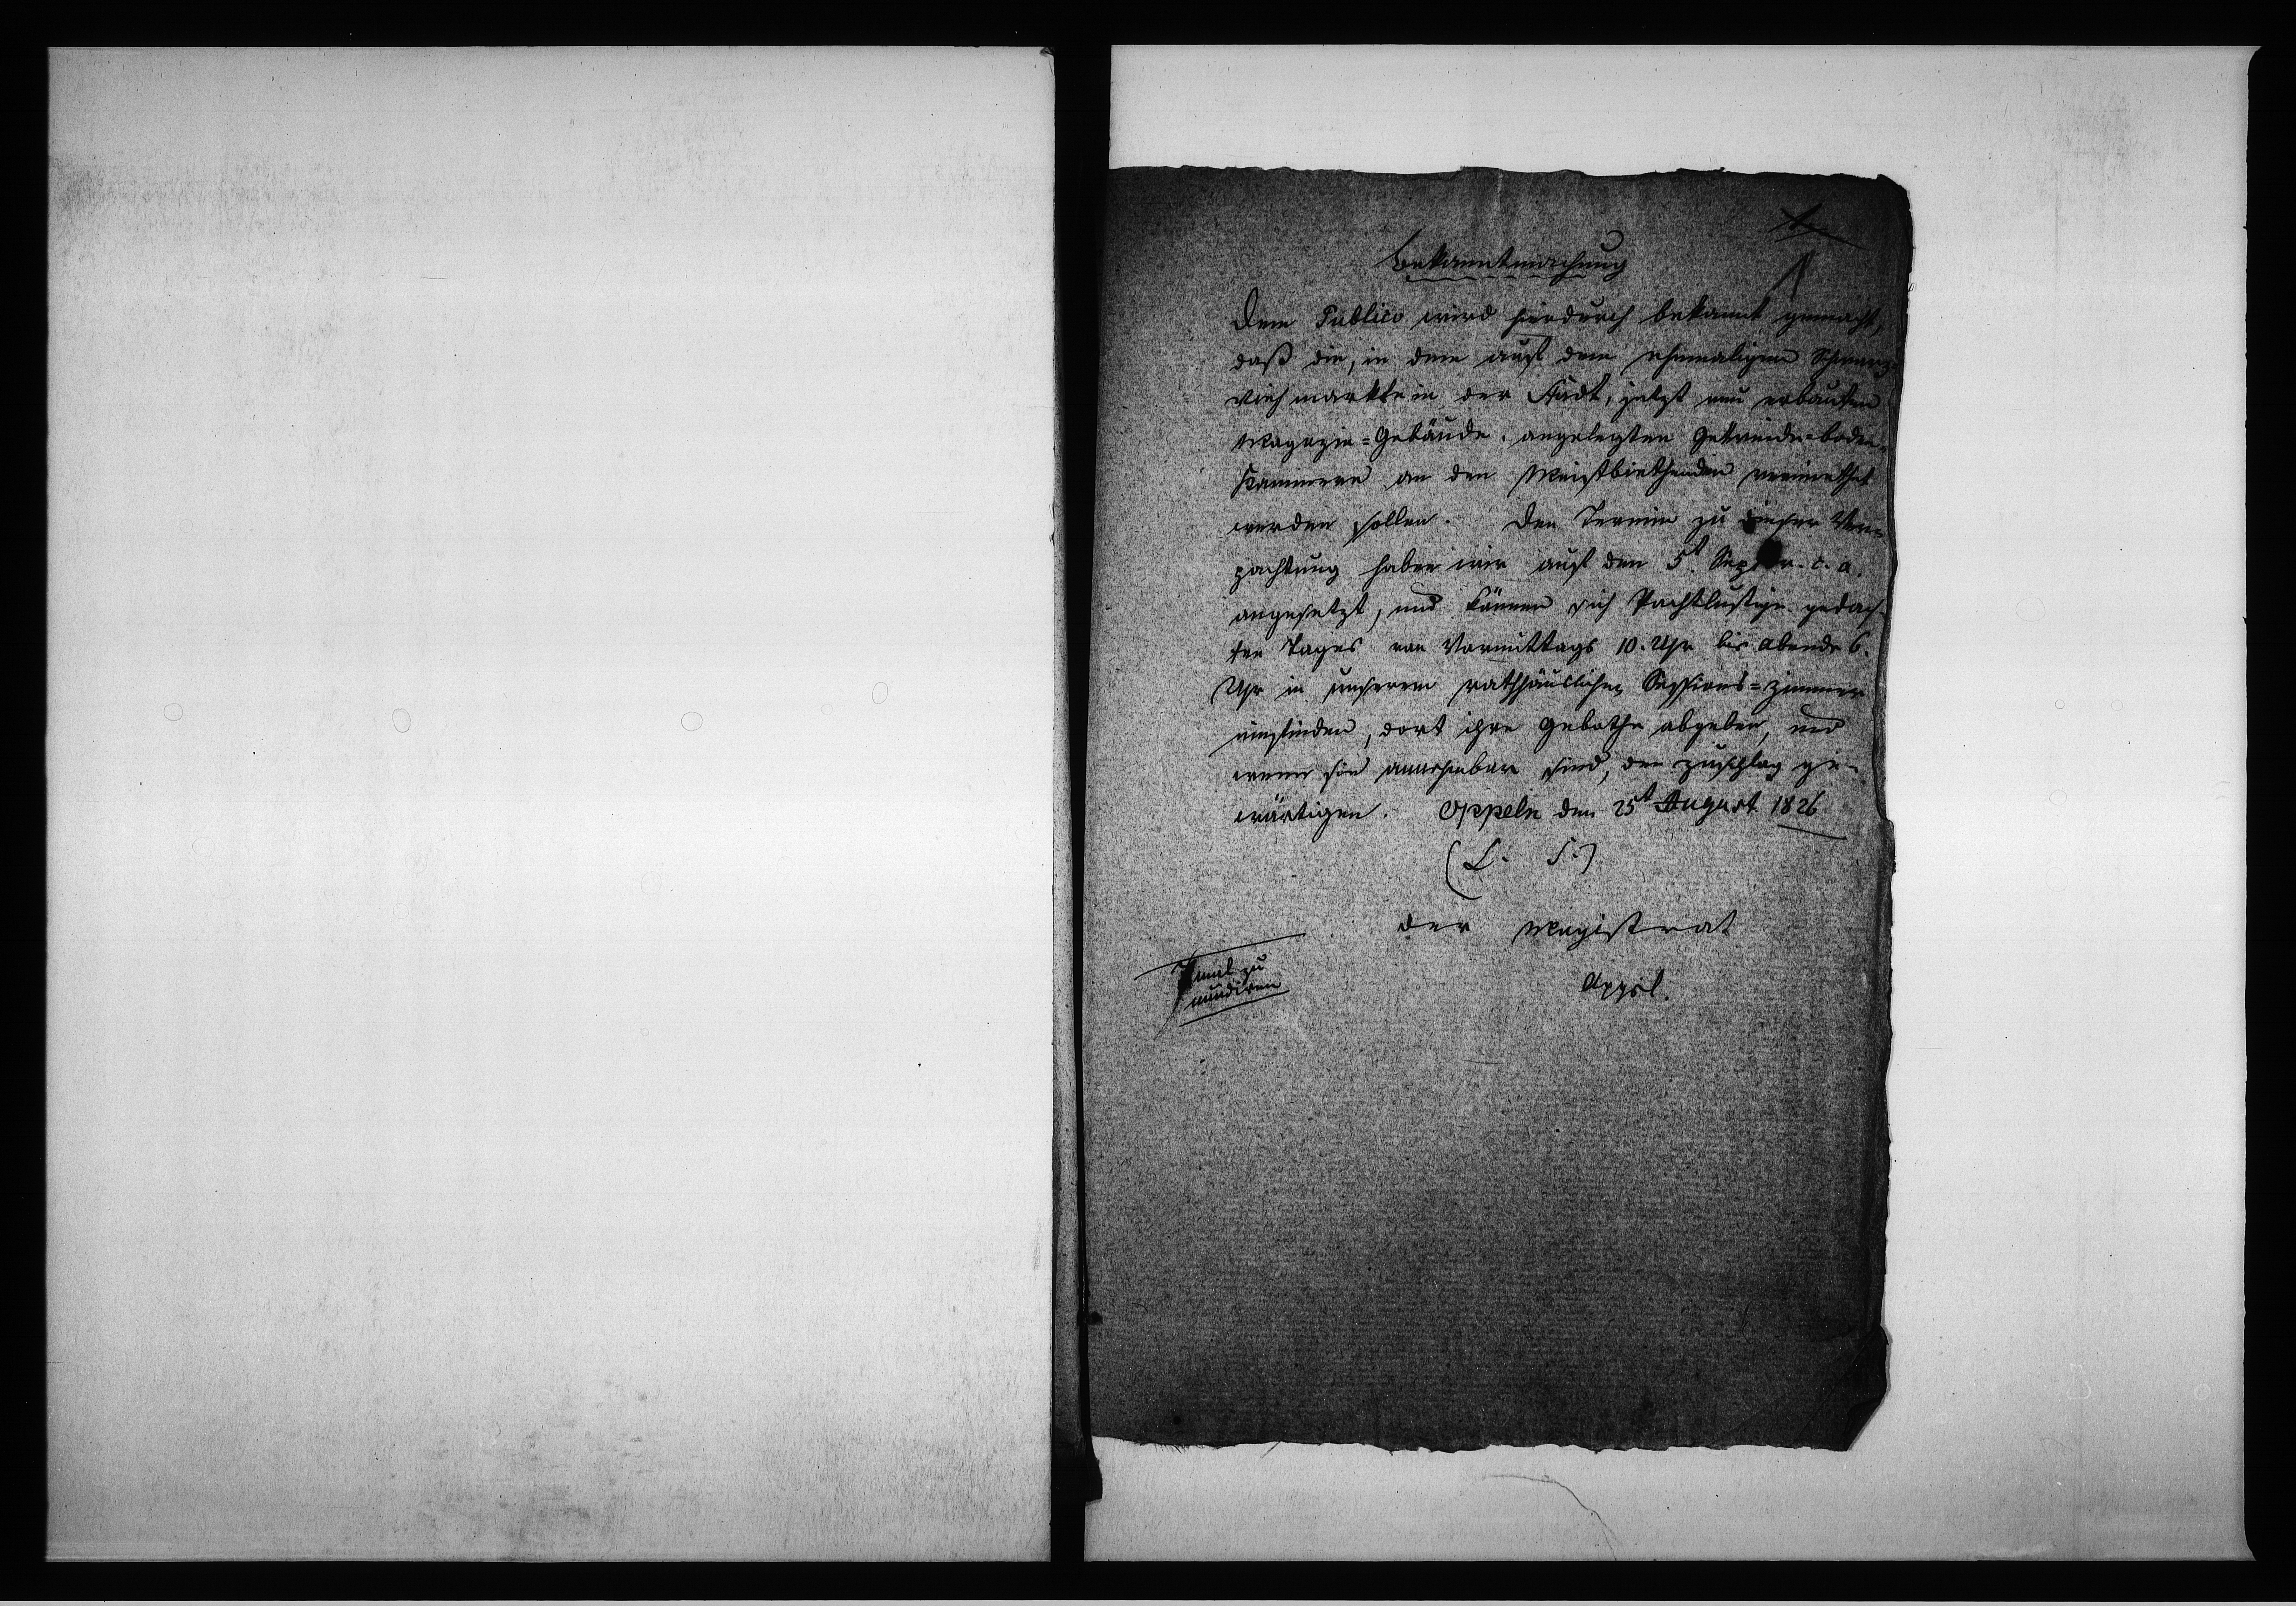 Bekanntmachung
Dem Publico wird hierdurch bekannt gemacht,
daß die, in dem auf dem ehemaligen Schwarz-
viehmarkte in der Stadt, jetzt neu erbauten
Magazin=Gebäude angelegten Getreide=boden=
Kammern an den Meistbiethenden vermiethet
werden sollen. Den Termin zu dieser Ver=
pachtung haben wir auf den 5t Septbr. c. a.
angesetzt, und können sich Pachtlustige gedach-
ten Tages von Vormittags 10. Uhr bis abends 6.
Uhr in unserem rathhäuslichen Sessions=zimmer
einfinden, dort ihre Gebothe abgeben, und
wenn sie annehmbar sind, den zuschlag ge-
wärtigen. Oppeln den 25t August 1826
(L. S.)
der Magistrat
mal zu
mundiren